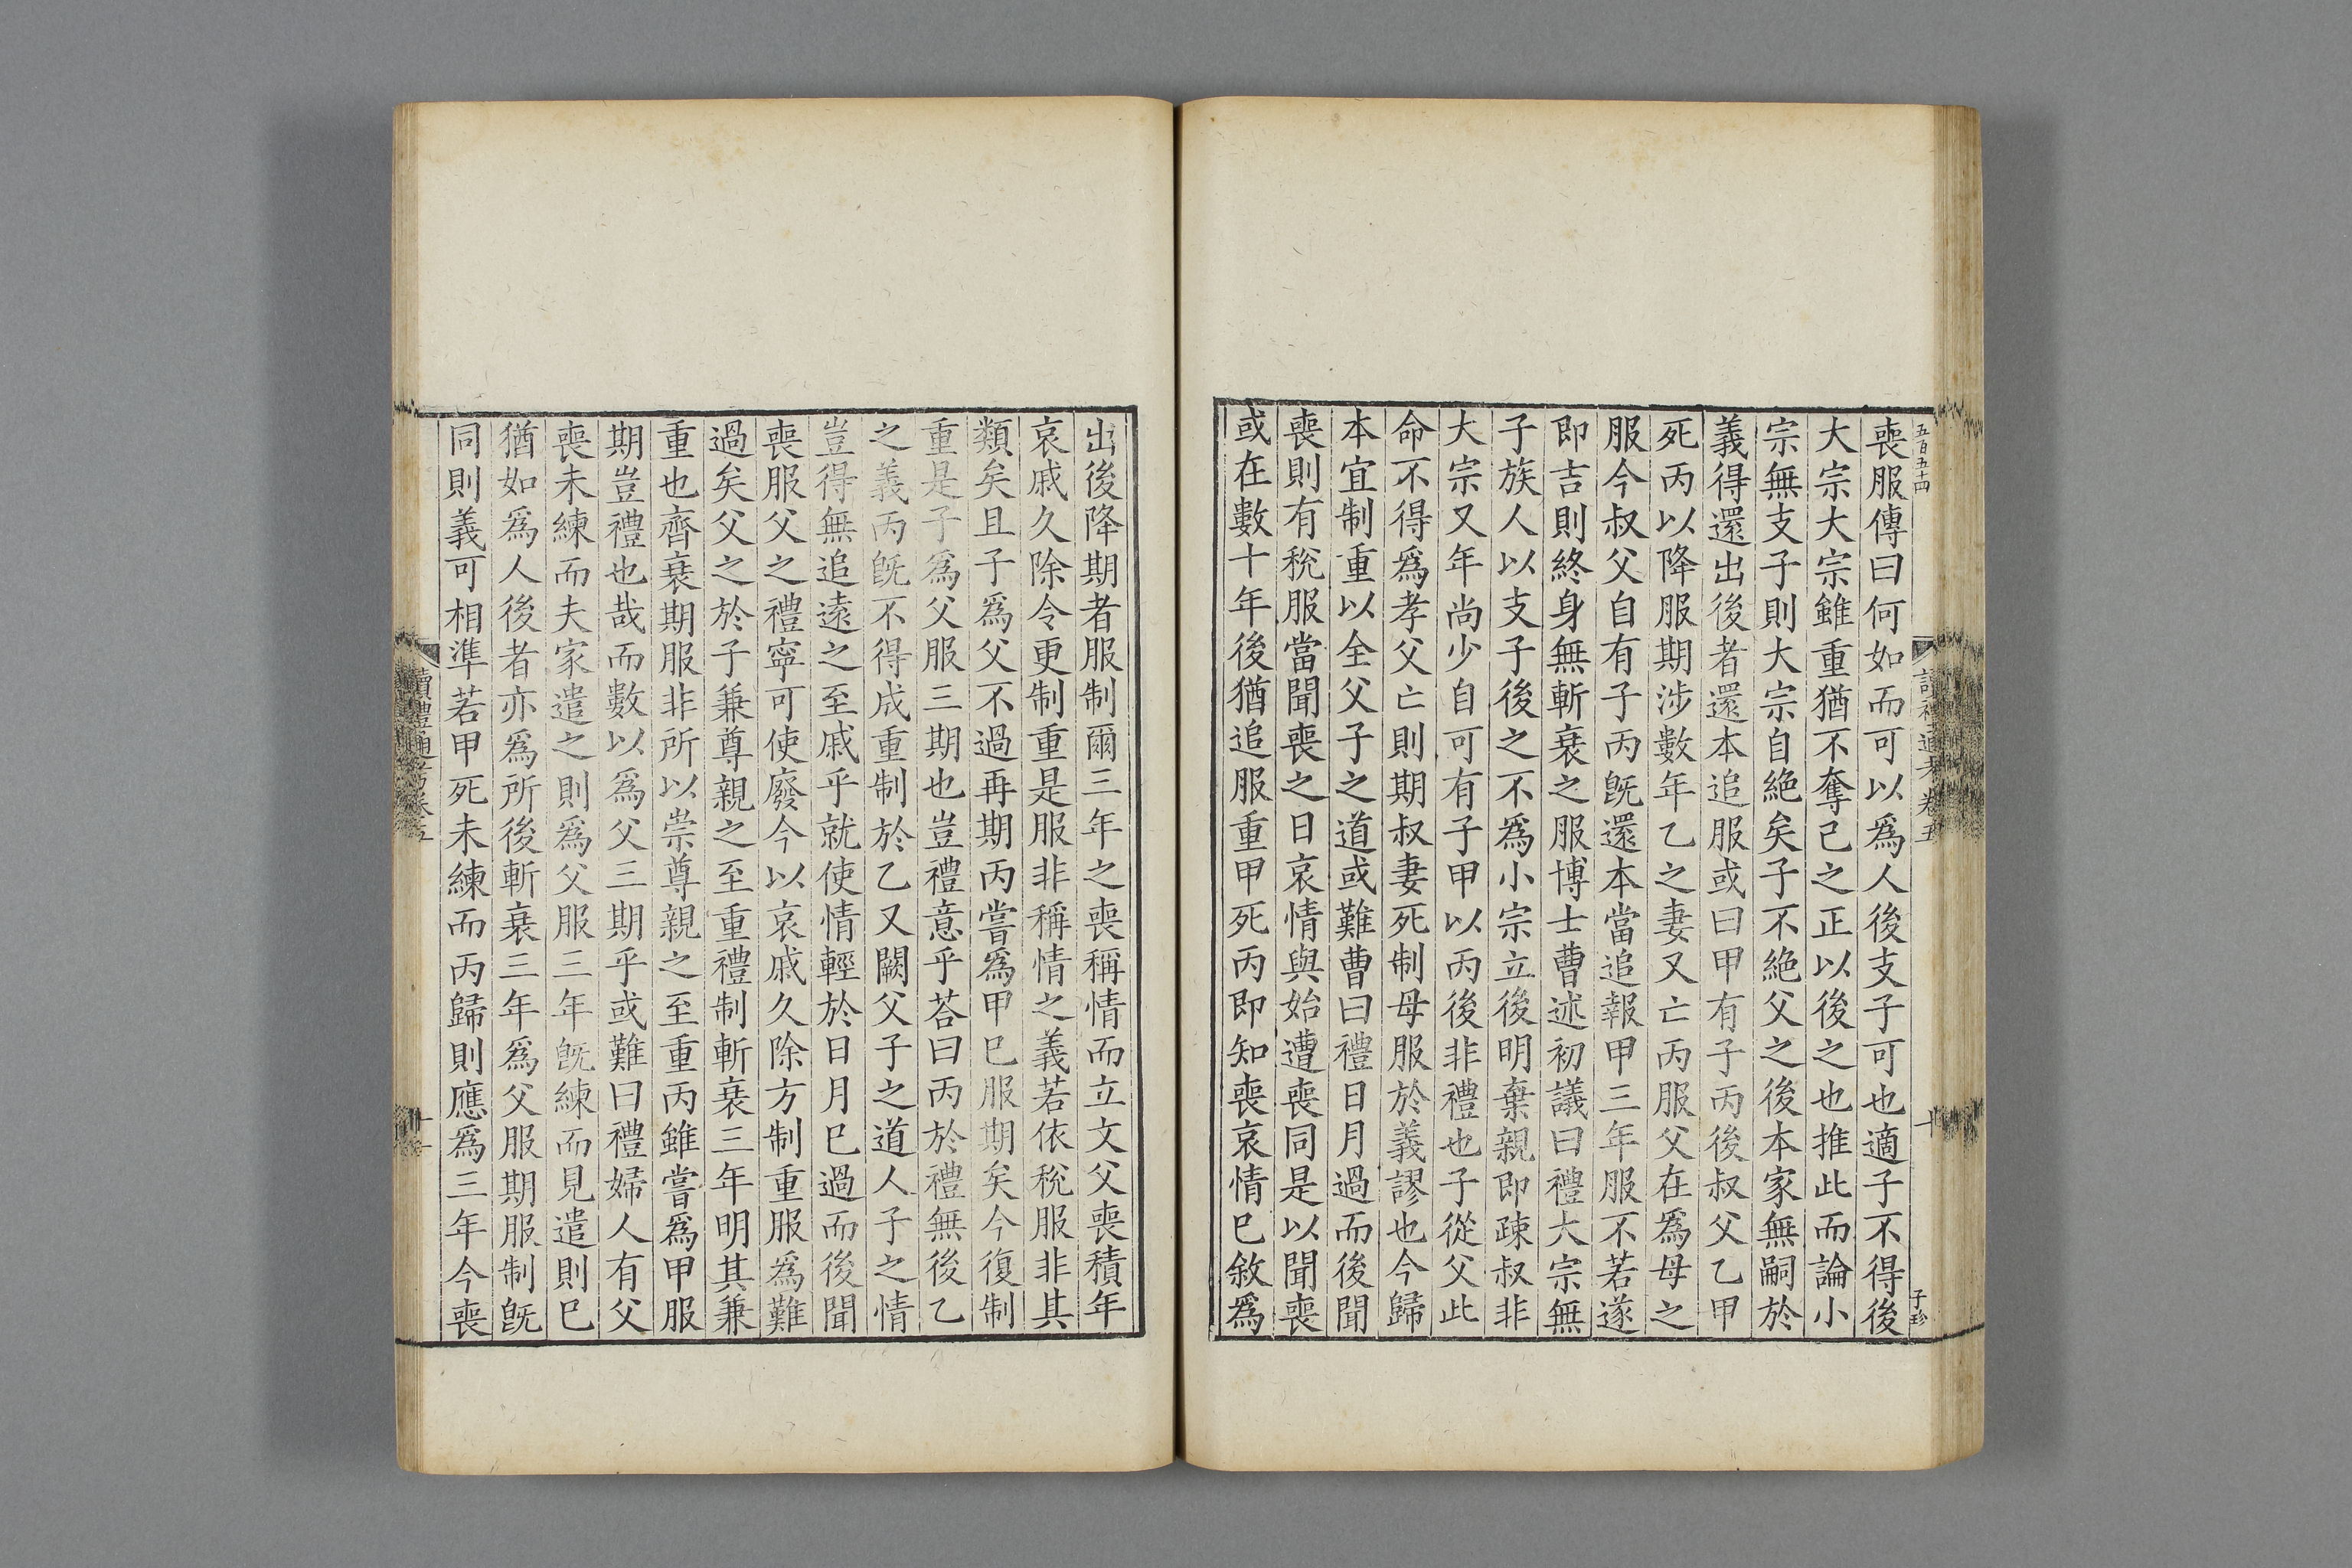 五百五十四
讀禮通考卷五
十
子珍
喪服傳曰何如而可以爲人後支子可也適子不得後
大宗大宗雖重猶不奪己之正以後之也推此而論小
宗無支子則大宗自絶矣子不絶父之後本家無嗣於
義得還出後者還本追服或曰甲有子丙後叔父乙甲
死丙以降服期涉數年乙之妻又亡丙服父在爲母之
服今叔父自有子丙旣還本當追報甲三年服不若遂
即吉則終身無斬衰之服博士曹述初議曰禮大宗無
子族人以支子後之不爲小宗立後明棄親即疎叔非
大宗又年尚少自可有子甲以丙後非禮也子從父此
命不得爲孝父亡則期叔妻死制母服於義謬也今歸
本宜制重以全父子之道或難曹曰禮日月過而後聞
喪則有稅服當聞喪之日哀情與始遭喪同是以聞喪
或在數十年後猶追服重甲死丙即知喪哀情巳敘爲
出後降期者服制爾三年之喪稱情而立文父喪積年
哀戚久除令更制重是服非稱情之義若依稅服非其
類矣且子爲父不過再期丙嘗爲甲巳服期矣今復制
重是子爲父服三期也豈禮意乎荅曰丙於禮無後乙
之義丙旣不得成重制於乙又闕父子之道人子之情
豈得無追遠之至戚乎就使情輕於日月巳過而後聞
喪服父之禮寧可使廢今以哀戚久除方制重服爲難
過矣父之於子兼尊親之至重禮制斬衰三年明其兼
重也齊衰期服非所以崇尊親之至重丙雖嘗爲甲服
期豈禮也哉而數以爲父三期乎或難曰禮婦人有父
喪未練而夫家遣之則爲父服三年旣練而見遣則巳
猶如爲人後者亦爲所後斬衰三年爲父服期服制旣
同則義可相準若甲死未練而丙歸則應爲三年今喪
讀禮通考卷五
十一